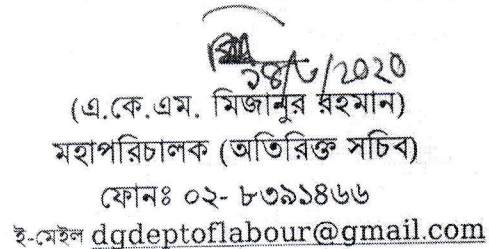 (এ.কে.এম. মিজানুর রহমান)
মহাপরিচালক (অতিরিক্ত সচিব)
ফোনঃ ০২- ৮৩৯১৪৬৬
ই-মেইল dgdeptoflabour@gmail.com